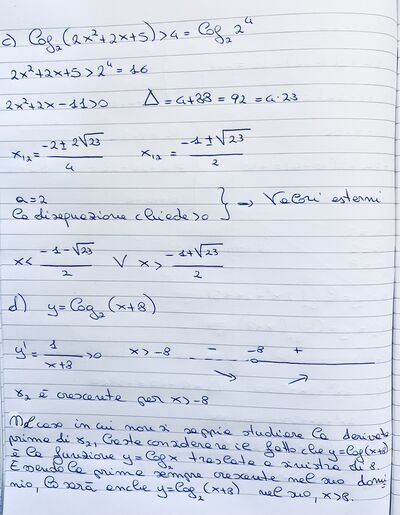 c) log₂(2x²+2x+5)>4 = log₂ 2⁴
2x²+2x+5>2⁴=16
2x²+2x-11>0 Δ=4+88=92=4·23
x₁,₂= (-2±2√23)/4 x₁,₂= (-1±√23)/2
a=2
la disequazione chiede >0 } → Valori esterni
x< (-1-√23)/2 V x> (-1+√23)/2
d) y=log₂(x+8)
y'= 1/(x+8) >0 x>-8 - -8 +
x₂ è crescente per x>-8
Nel caso in cui non si sappia studiare la derivata
prima di x₂, basta considerare il fatto che y=log(x+8)
è la funzione y=log₂x traslata a sinistra di 8.
Essendo la prima sempre crescente nel suo domi-
nio, lo sarà anche y=log₂(x+8) nel suo, x>8.